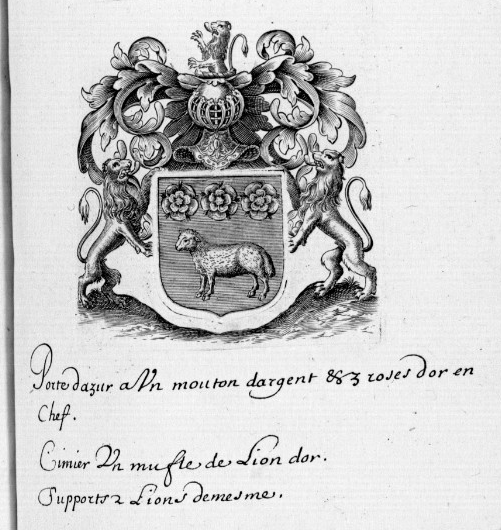 Porte dazur a Vn mouton dargent & 3 roses dor en
Chef.
Cimier Vn mufle de Lion dor.
Supports 2 Lions demesme.